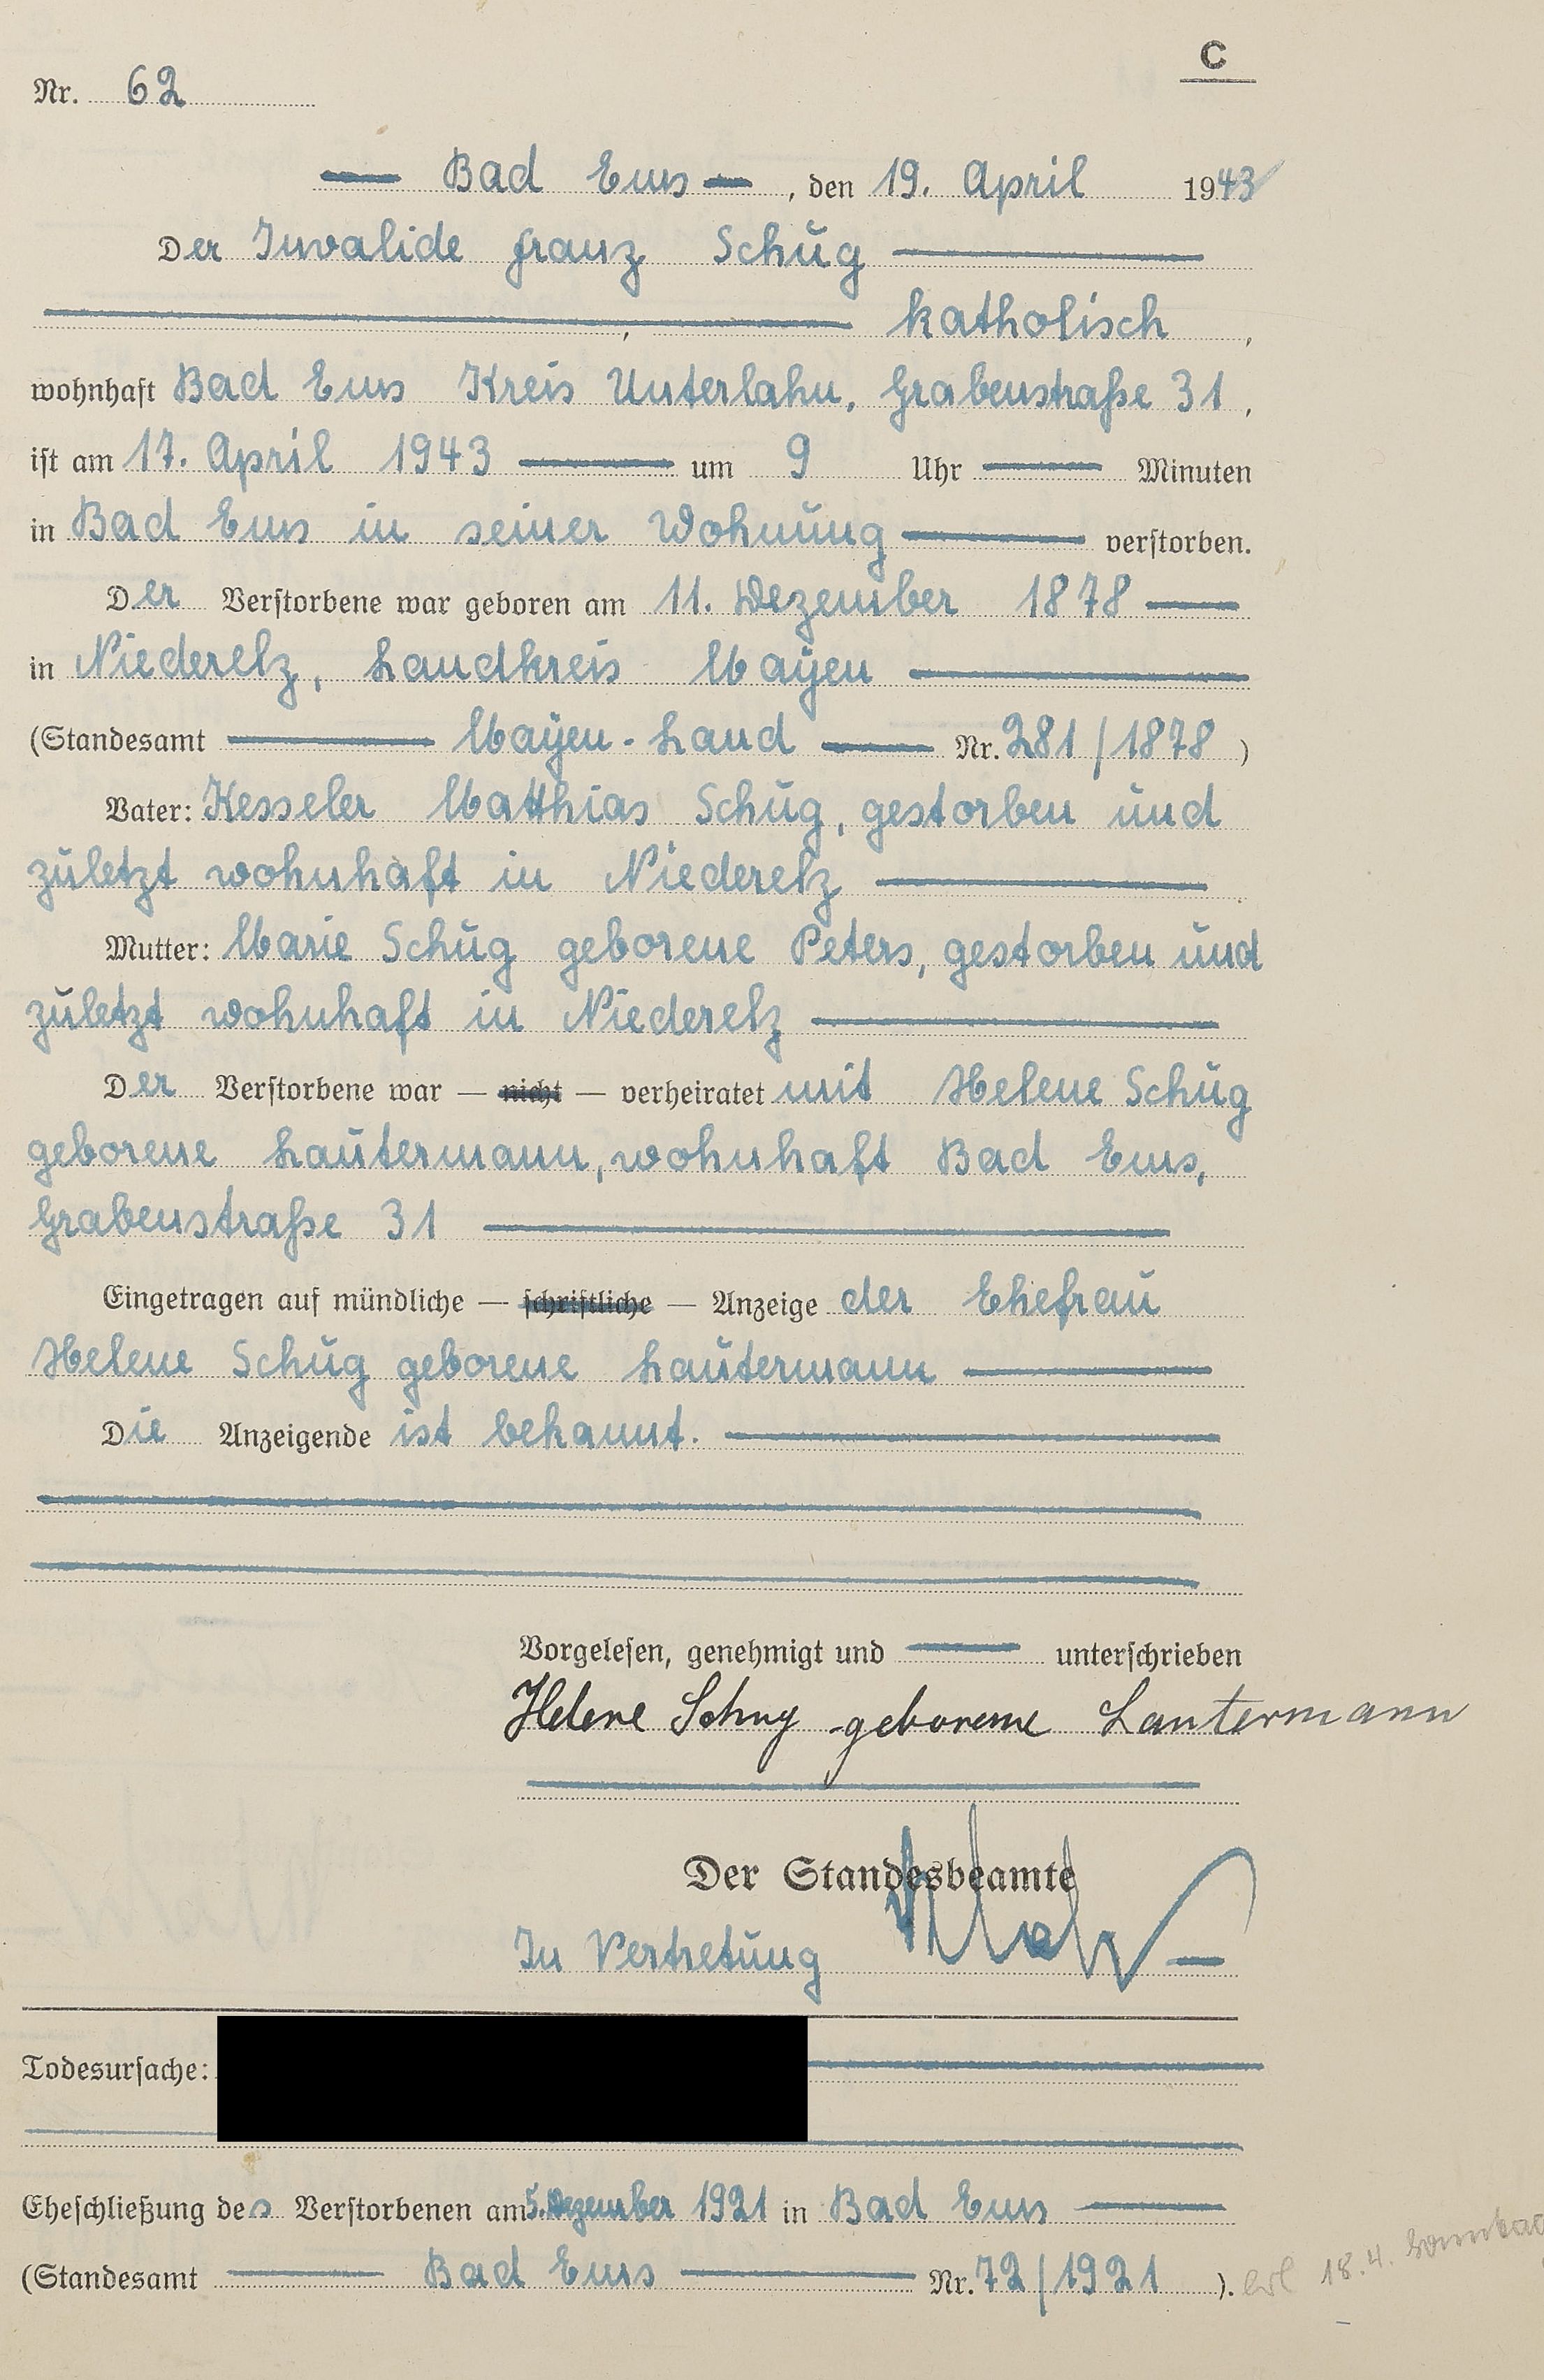 C
Nr. 62
Bad Ems, den 19. April 1943
Der Invalide Franz Schug
, katholisch,
wohnhaft Bad Ems Kreis Unterlahn, Grabenstraße 31,
ist am 17. April 1943 um 9 Uhr Minuten
in Bad Ems in seiner Wohnung verstorben.
Der Verstorbene war geboren am 11. Dezember 1878
in Niederelz, Landkreis Mayen
(Standesamt Mayen-Land Nr. 281/1878)
Vater: Kesseler Matthias Schug, gestorben und
zuletzt wohnhaft in Niederelz.
Mutter: Marie Schug geborene Peters, gestorben und
zuletzt wohnhaft in Niederelz
Der Verstorbene war — nicht — verheiratet mit Helene Schug
geborene Lautermann, wohnhaft Bad Ems,
Grabenstraße 31
Eingetragen auf mündliche — schriftliche — Anzeige der Ehefrau
Helene Schug geborene Lautermann
Die Anzeigende ist bekannt.
Vorgelesen, genehmigt und unterschrieben
Helene Schug geborene Lautermann
Der Standesbeamte
In Vertretung
Todesursache:
Eheschließung des Verstorbenen am 5. Dezember 1921 in Bad Ems
(Standesamt Bad Ems Nr. 72/1921).
18.4.